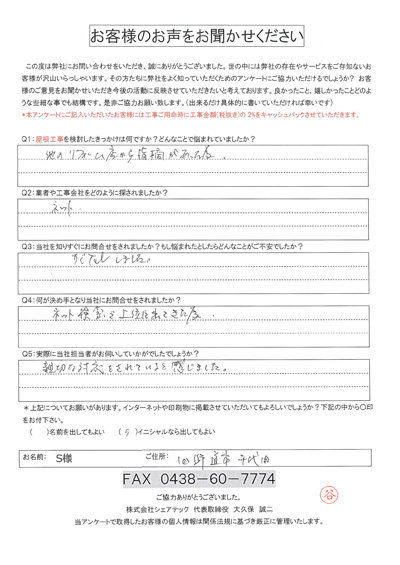 お客様のお声をお聞かせください
この度は弊社にお問い合わせをいただき、誠にありがとうございます。世の中には弊社の存在やサービスをご存知ないお
客様が沢山いらっしゃいます。その方たちに弊社をよく知っていただくためのアンケートにご協力いただけるでしょうか？ お客
様のご意見をお聞かせいただき今後の活動に反映させていただきたいと考えております。良かったこと、嬉しかったことどのよ
うな些細な事でも結構です。是非ご協力お願い致します。（出来るだけ具体的に書いていただければ幸いです）
*本アンケートにご記入いただいたお客様には工事ご用命時に工事金額(税抜き)の 2%をキャッシュバックさせていただきます。
Q1:屋根工事を検討したきっかけは何ですか？どんなことで悩まれていましたか？
他のリフォーム店から指摘があった為。
Q2:業者や工事会社をどのように探されましたか？
ネット
Q3:当社を知りすぐにお問合せをされましたか？もし悩まれたとしたらどんなことがご不安でしたか？
すぐにしました。
Q4:何が決め手となり当社にお問合せをされましたか？
ネット検索で上位に出てきた為
Q5:実際に当社担当者がお伺いしていかがでしたでしょうか？
親切な対応をされていると感じました。
＊上記についてお願いがあります。インターネットや印刷物に掲載させていただいてもよろしいでしょうか？下記の中から〇印
をお付下さい。
（　）名前を出してもよい　（　）イニシャルなら出してもよい
お名前: S様　ご住所:
FAX 0438-60-7774
ご協力ありがとうございました。
株式会社シェアテック 代表取締役 大久保 誠二
当アンケートで取得したお客様の個人情報は関係法規に基づき厳正に管理いたします。